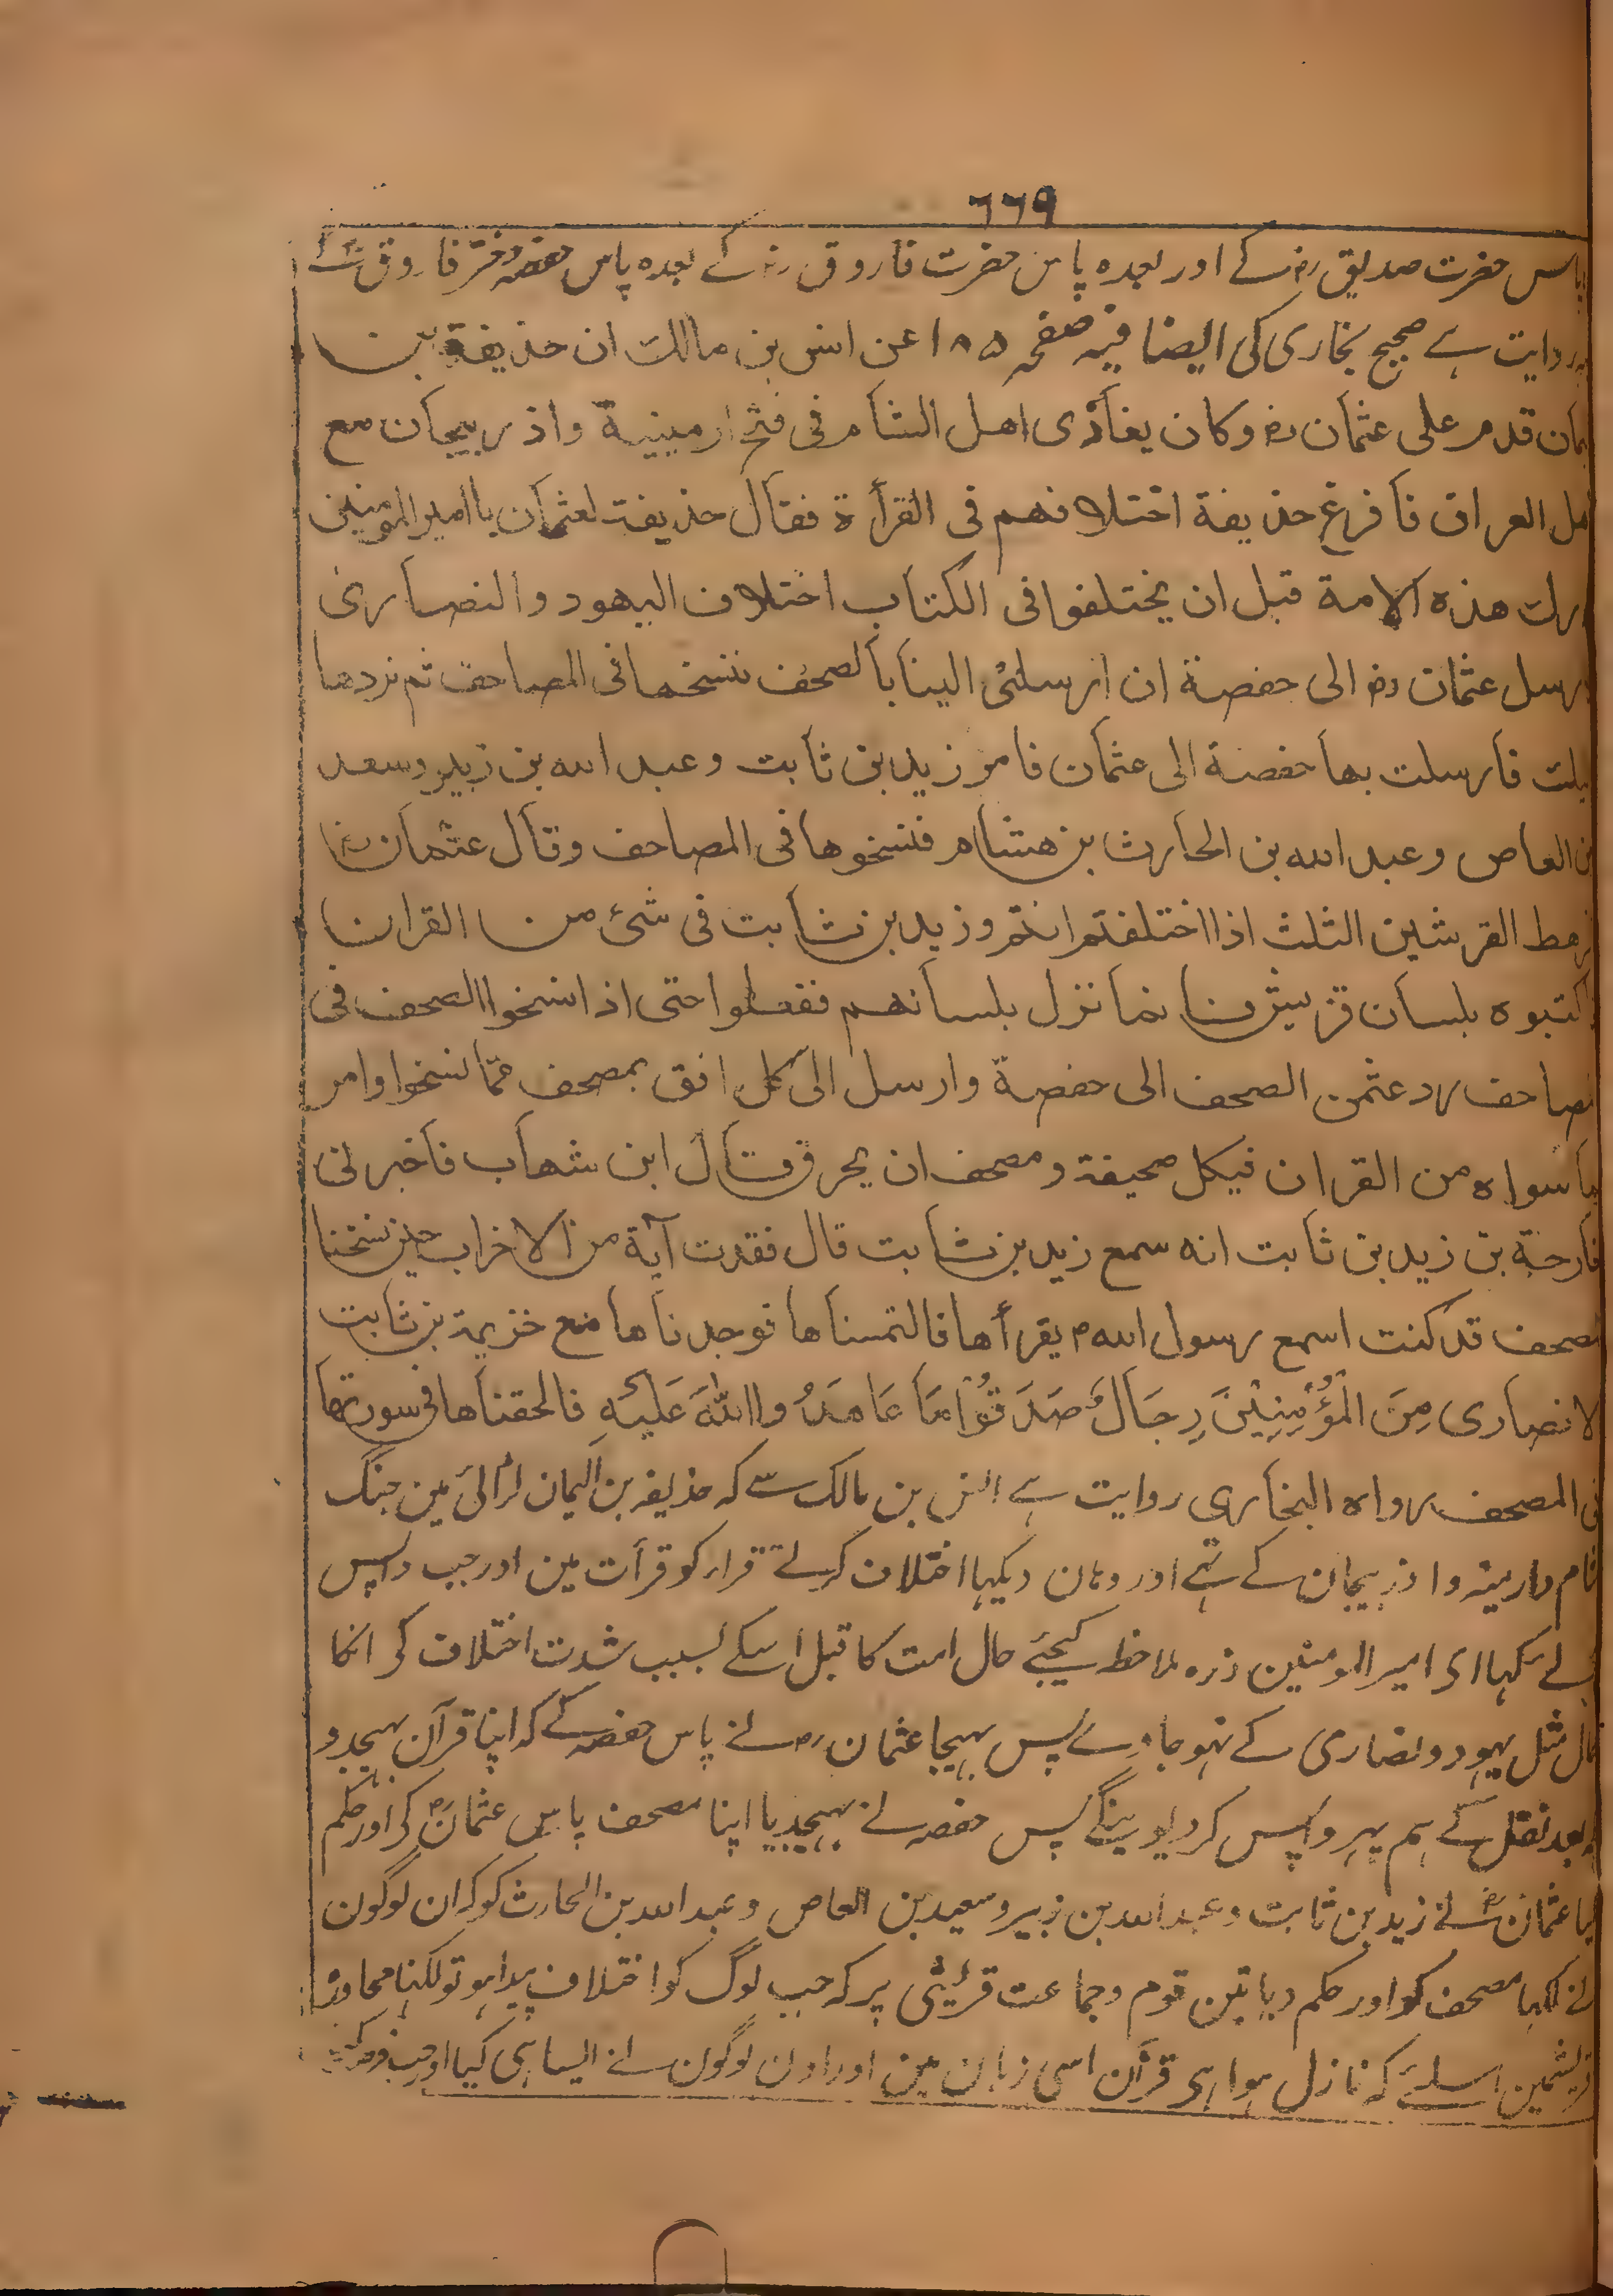 ٦٦٩
پاس حضرت صدیق رض کے اور بعدہ پاس حضرت فاروق رض کے بعدہ پاس حفصہ دختر فاروق
روایت ہے صحیح بخاری کی ایضا فیہ صفحہ ١٨٥ عن انس بن مالك ان حذيفة بن
یمان قدم على عثمان رض وكان يغازى اهل الشام فى فتح ارمينية واذربيجان مع
اهل العراق فافزع حذيفة اختلافهم فى القرأة فقال حذيفة لعثمان يا امير المؤمنين
ادرك هذه الامة قبل ان يختلفوا فى الكتاب اختلاف اليهود والنصارى
فارسل عثمان رض الى حفصة ان ارسلى الينا بالصحف ننسخها فى المصاحف ثم نردها
اليك فارسلت بها حفصة الى عثمان فامر زيد بن ثابت وعبد الله بن زبير وسعد
بن العاص وعبد الله بن الحارث بن هشام فنسخوها فى المصاحف وقال عثمان رض
لرهط القرشين الثلث اذا اختلفتم انتم وزيد بن ثابت فى شئ من القران
فاكتبوه بلسان قريش فانما نزل بلسانهم ففعلوا حتى اذا نسخوا الصحف فى
المصاحف رد عثمن الصحف الى حفصة وارسل الى كل افق بمصحف مما نسخوا وامر
بما سواه من القران فيكل صحيفة ومصحف ان يحرق قال ابن شهاب فاخبرنى
خارجة بن زيد بن ثابت انه سمع زيد بن ثابت قال فقدت آية من الاحزاب حين نسخنا
المصحف قد كنت اسمع رسول الله م يقرأها فالتمسناها فوجدناها مع خزيمة بن ثابت
الانصارى مِنَ الْمُؤْمِنِيْنَ رِجَالٌ صَدَقُوْا مَا عَاهَدُوا اللّٰهَ عَلَيْهِ فالحقناها فى سورتها
فى المصحف رواه البخارى روایت ہے انس بن مالک سے کہ حذیفہ بن الیمان لڑائی مین جنگ
شام وارمینہ واذربیجان کے تہے اور وہان دیکہا اختلاف کرتے قراء کو قرأت مین اور جب واپس
آئے کہا ای امیر المومنین ذرہ ملاحظہ کیجئے حال امت کا قبل اسکے بسبب شدت اختلاف کی انکا
حال مثل یہود ونصاری کے نہو جاوے پس بہیجا عثمان رض نے پاس حفصہ کے کہ اپنا قرآن بہیجدو
بعد نقل کے ہم پہر واپس کردیوینگے پس حفصہ نے بہیجدیا اپنا مصحف پاس عثمان رض کی اور حکم
کیا عثمان رض نے زید بن ثابت وعبداللہ بن زبیر وسعید بن العاص وعبداللہ بن الحارث کو کہ ان لوگون
نے لکہا مصحف کو اور حکم دیا تین قوم وجماعت قریشی پر کہ جب لوگ کو اختلاف پیدا ہو تو لکہنا محاورہ
قریشمین اسلئے کہ نازل ہوا ہی قرآن اسی زبان مین اور اون لوگون نے ایسا ہی کیا اور جب